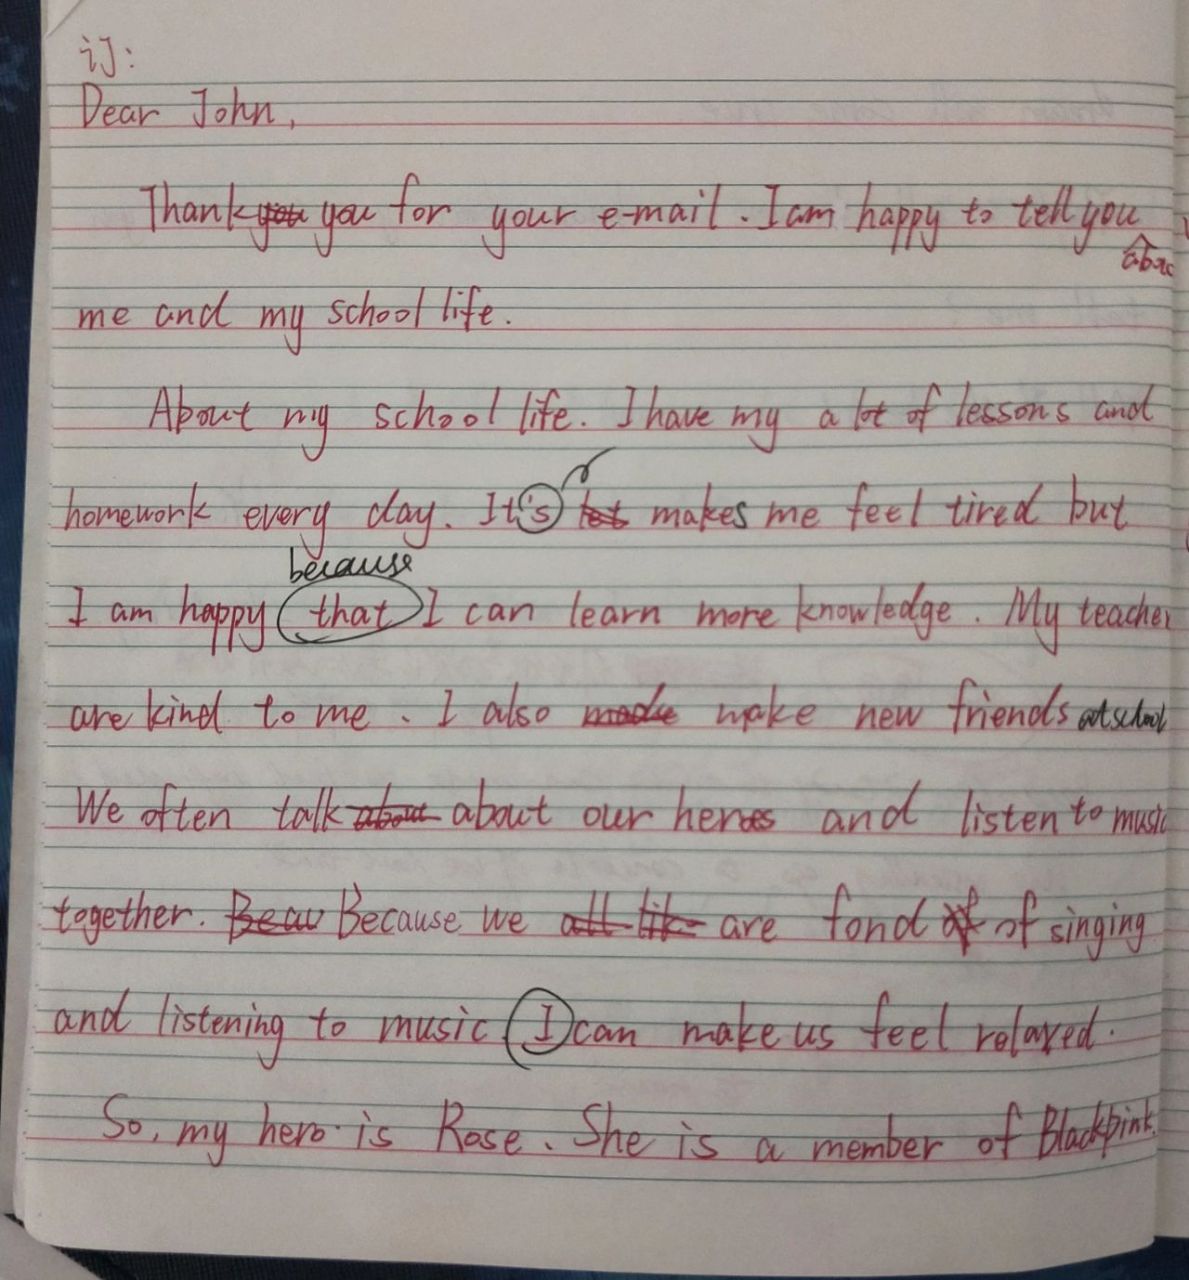 订:
Dear John,
Thank you you for your e-mail. I am happy to tell you
me and my school life.
About my school life. I have my a lot of lessons and
homework every day. It's makes me feel tired but
because
I am happy that I can learn more knowledge. My teacher
are kind to me. I also made make new friends at school
We often talk about about our heroes and listen to music
together. Beau Because we all like are fond of of singing
and listening to music I can make us feel relaxed.
So, my hero is Rose. She is a member of Blackpink.